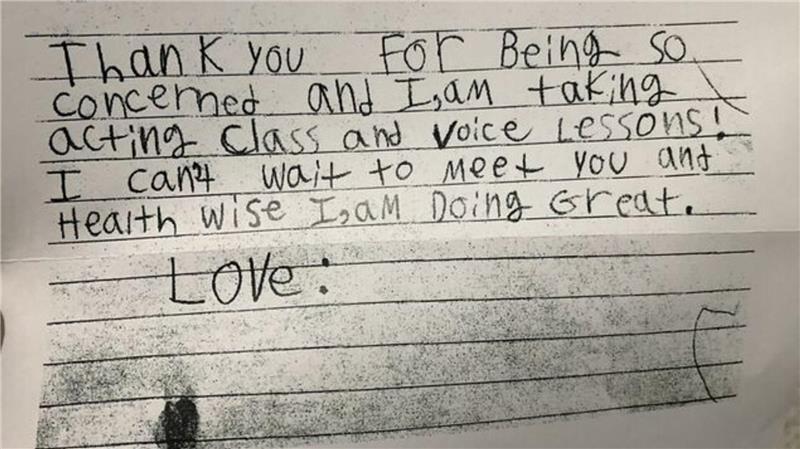 Thank you For Being so
concerned and I,am taking
acting class and voice Lessons!
I can't wait to meet you and
Health wise I,am Doing Great.
Love: